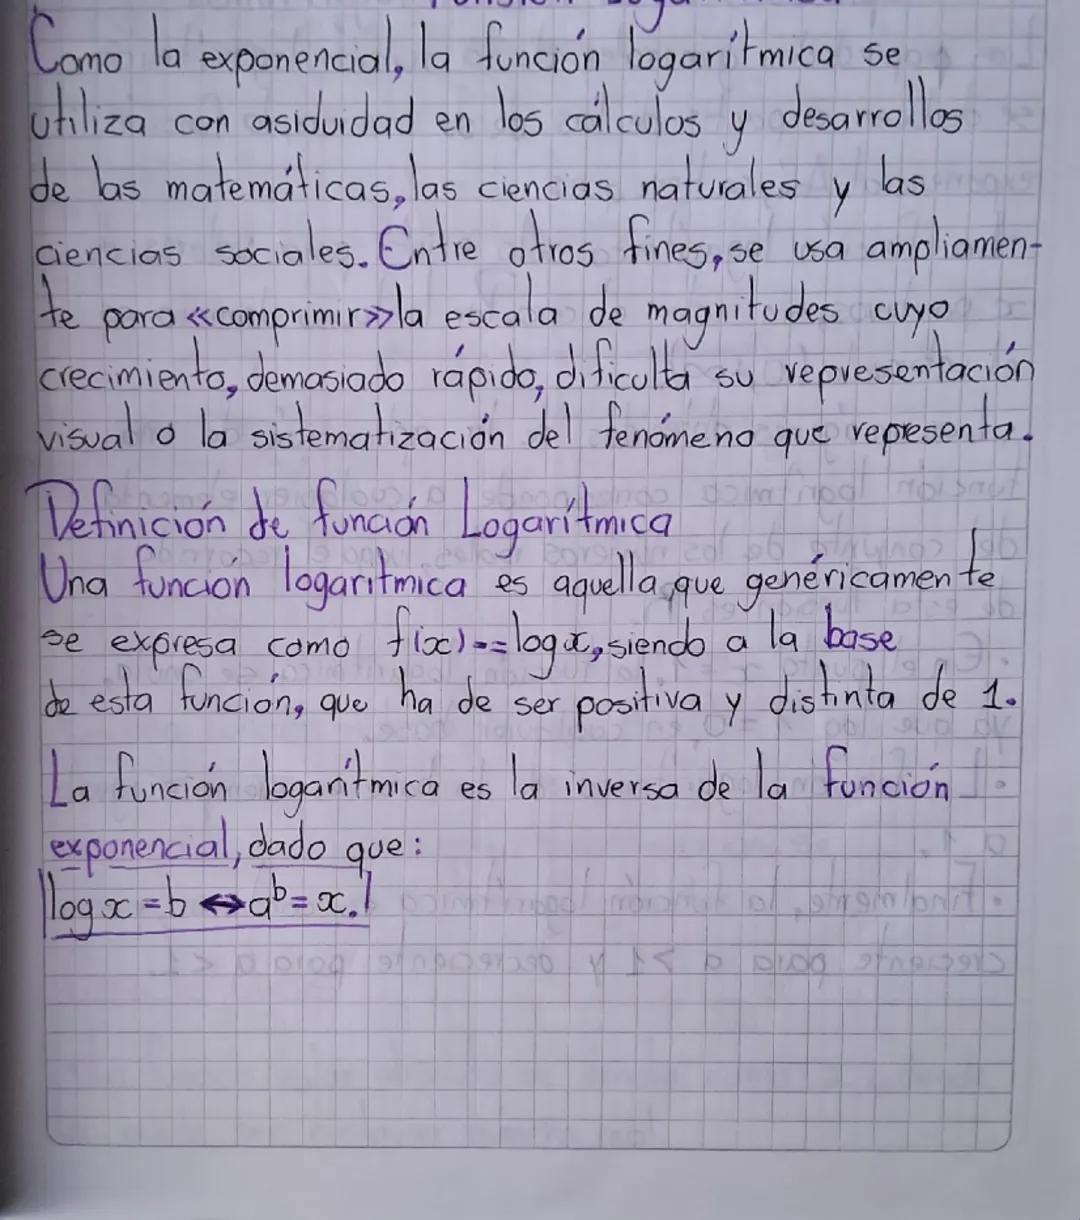 Como la exponencial, la función logarítmica se
utiliza con asiduidad en los cálculos y desarrollos
de las matemáticas, las ciencias naturales y las
ciencias sociales. Entre otros fines, se usa ampliamen-
te para «comprimir» la escala de magnitudes cuyo
crecimiento, demasiado rápido, dificulta su representación
visual o la sistematización del fenómeno que representa.
Definición de función Logarítmica
Una función logarítmica es aquella que genéricamente
se expresa como f(x)==logx, siendo a la base
de esta función, que ha de ser positiva y distinta de 1.
La función logarítmica es la inversa de la función
exponencial, dado que:
log x = b ↔ a^b = x.